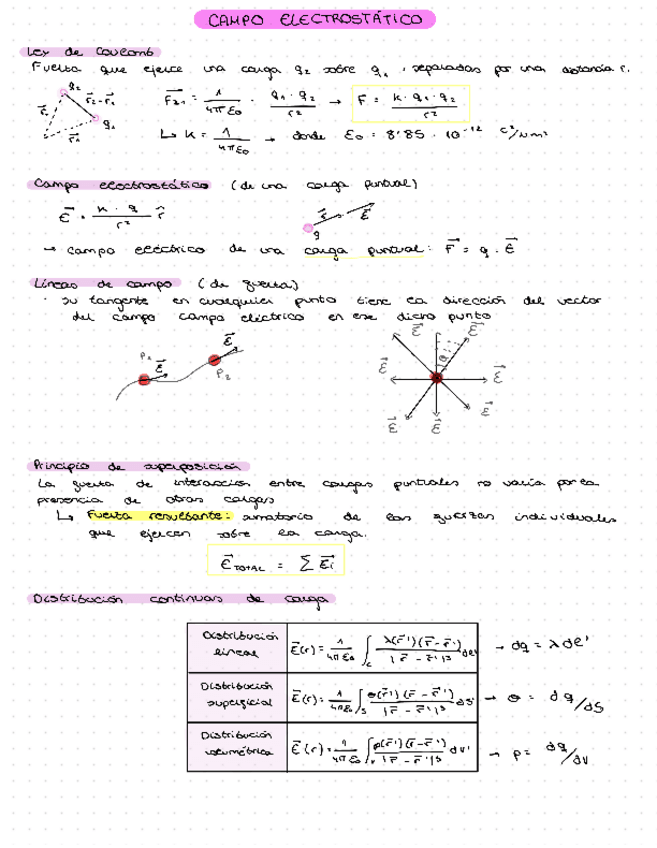 CAMPO ELECTROSTÁTICO
Ley de Coulomb
Fuerza que ejerce una carga q₂ sobre q₁, separadas por una distancia r.
q₂
r⃗₂-r⃗₁
q₁
r⃗₁
F⃗₂₁ = 1/4πε₀ · q₁·q₂/r² → F = K·q₁·q₂/r²
↳ K = 1/4πε₀ → donde ε₀ = 8'85 · 10⁻¹² C²/Nm²
Campo electrostático (de una carga puntual)
E⃗ = K·q/r² r̂
r⃗ E⃗
q
→ campo eléctrico de una carga puntual: F⃗ = q · E⃗
Líneas de campo (de fuerza)
· Su tangente en cualquier punto tiene la dirección del vector
del campo campo eléctrico en ese dicho punto
P₁ E⃗
P₂ E⃗
E⃗ E⃗
E⃗ E⃗
E⃗ E⃗ E⃗
Principio de superposición
La fuerza de interacción entre cargas puntuales no varía por la
presencia de otras cargas
↳ Fuerza resultante: sumatorio de las fuerzas individuales
que ejercen sobre la carga.
E⃗ TOTAL = Σ E⃗i
Distribución continuas de carga
Distribución lineal E⃗(r) = 1/4πε₀ ∫c λ(r⃗')(r⃗-r⃗')/|r⃗-r⃗'|³ dl' → dq = λ dl'
Distribución superficial E⃗(r) = 1/4πε₀ ∫s σ(r⃗')(r⃗-r⃗')/|r⃗-r⃗'|³ dS' → σ = dq/dS
Distribución volumétrica E⃗(r) = 1/4πε₀ ∫v ρ(r⃗')(r⃗-r⃗')/|r⃗-r⃗'|³ dv' → ρ = dq/dv